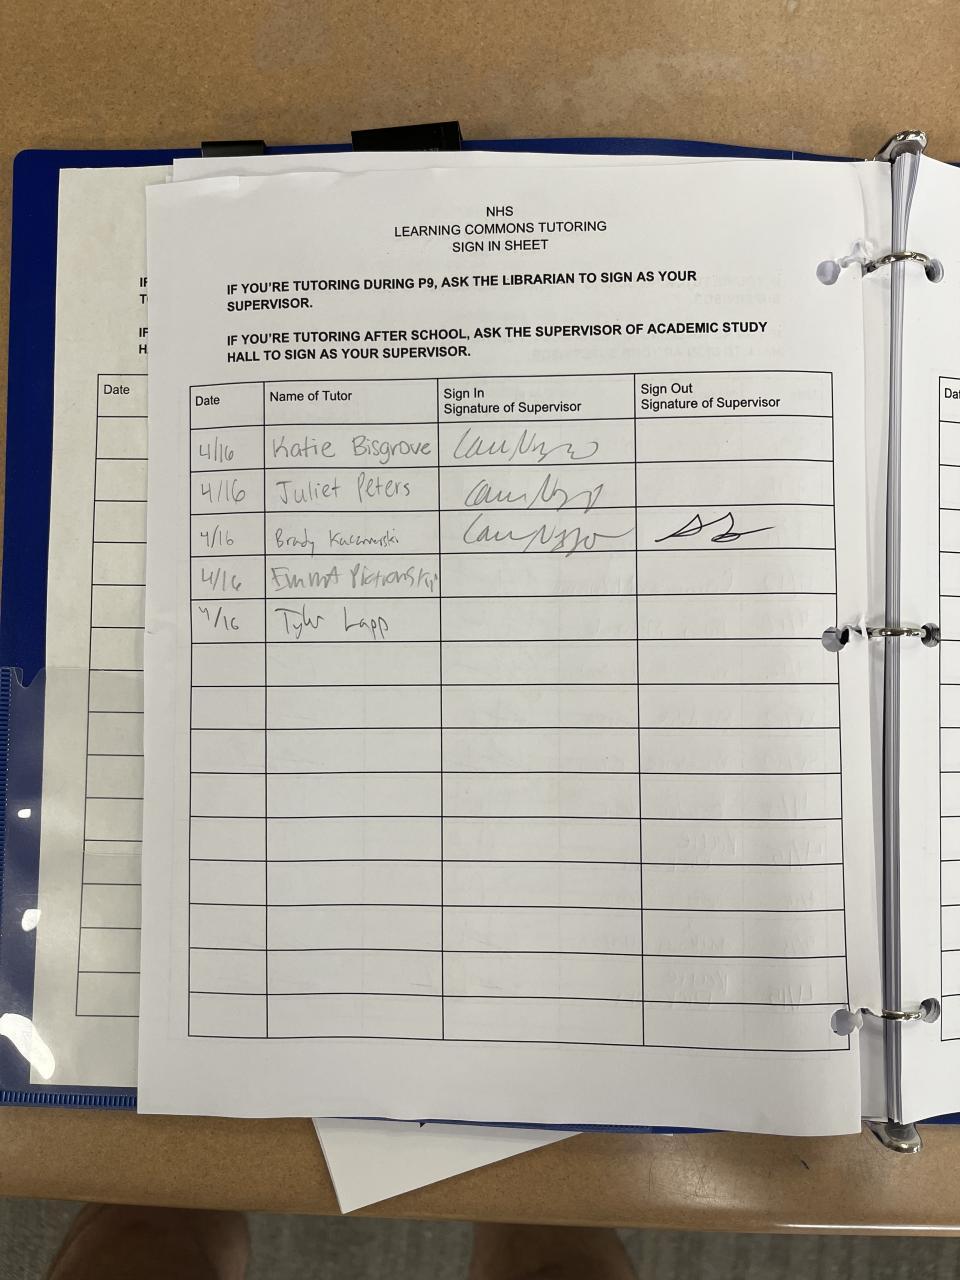 NHS
LEARNING COMMONS TUTORING
SIGN IN SHEET
IF YOU'RE TUTORING DURING P9, ASK THE LIBRARIAN TO SIGN AS YOUR
SUPERVISOR.
IF YOU'RE TUTORING AFTER SCHOOL, ASK THE SUPERVISOR OF ACADEMIC STUDY
HALL TO SIGN AS YOUR SUPERVISOR.
Date
Date Name of Tutor Sign In Sign Out
Signature of Supervisor Signature of Supervisor
4/16 Katie Bisgrove
4/16 Juliet Peters
4/16 Brady
4/16 Emma
4/16 Tyler Lapp